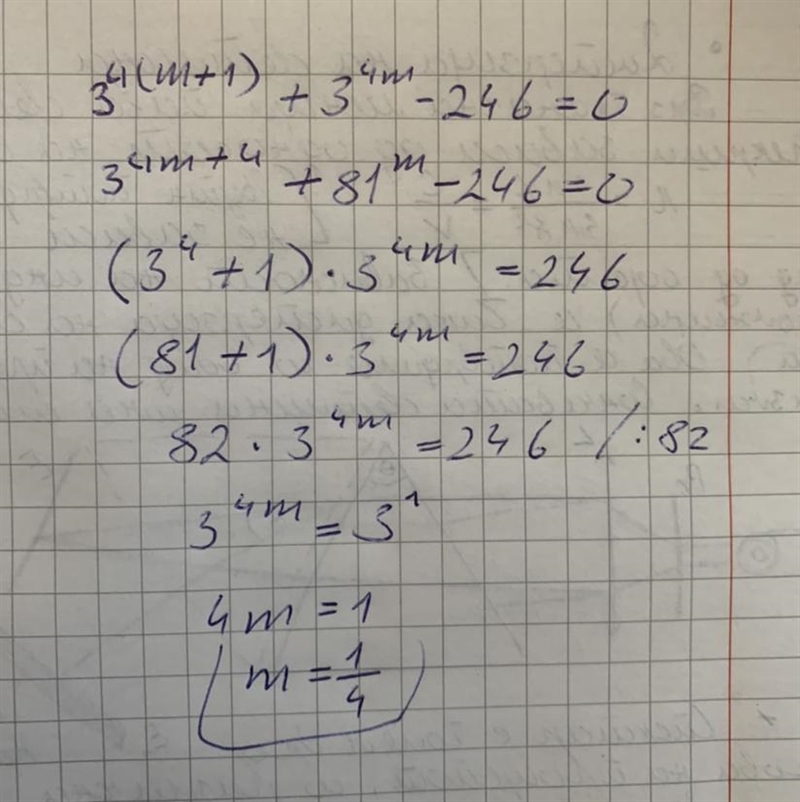 3^{4(m+1)} + 3^{4m} - 246 = 0
3^{4m+4} + 81^m - 246 = 0
(3^4 + 1) · 3^{4m} = 246
(81 + 1) · 3^{4m} = 246
82 · 3^{4m} = 246 /: 82
3^{4m} = 3^1
4m = 1
m = \frac{1}{4}